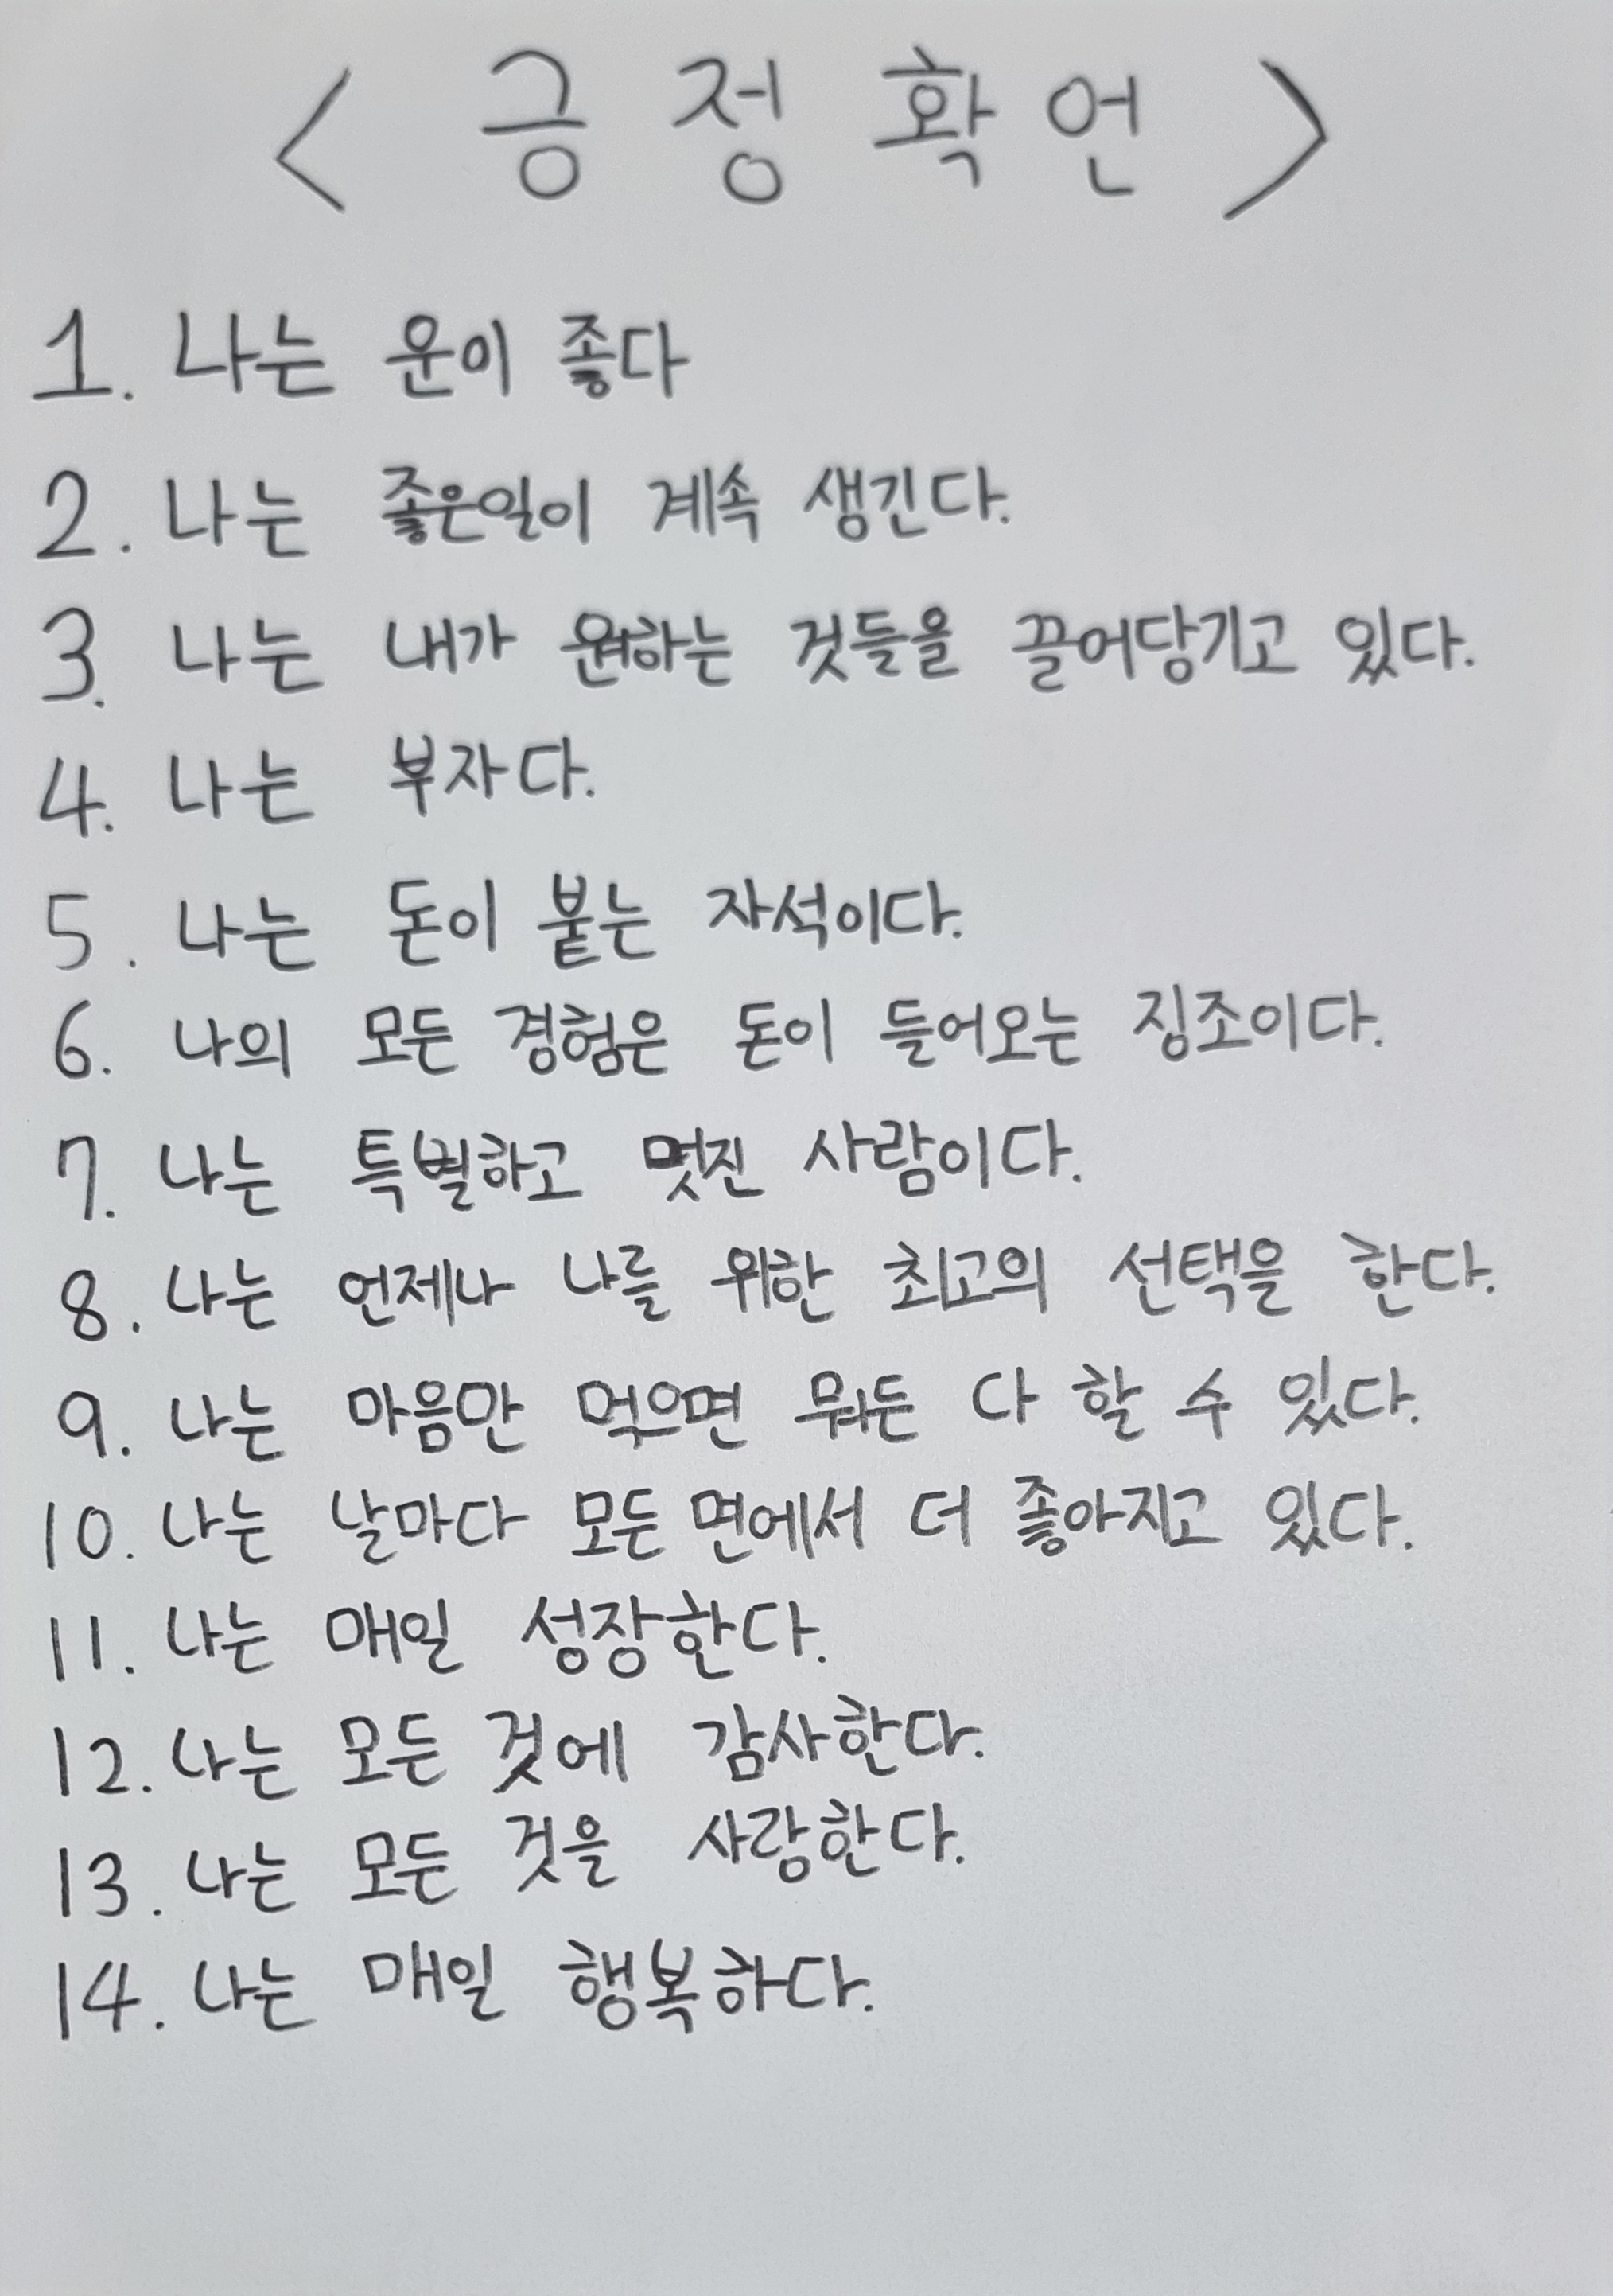 < 긍정확언 >
1. 나는 운이 좋다
2. 나는 좋은일이 계속 생긴다.
3. 나는 내가 원하는 것들을 끌어당기고 있다.
4. 나는 부자다.
5. 나는 돈이 붙는 자석이다.
6. 나의 모든 경험은 돈이 들어오는 징조이다.
7. 나는 특별하고 멋진 사람이다.
8. 나는 언제나 나를 위한 최고의 선택을 한다.
9. 나는 마음만 먹으면 뭐든 다 할 수 있다.
10. 나는 날마다 모든 면에서 더 좋아지고 있다.
11. 나는 매일 성장한다.
12. 나는 모든 것에 감사한다.
13. 나는 모든 것을 사랑한다.
14. 나는 매일 행복하다.